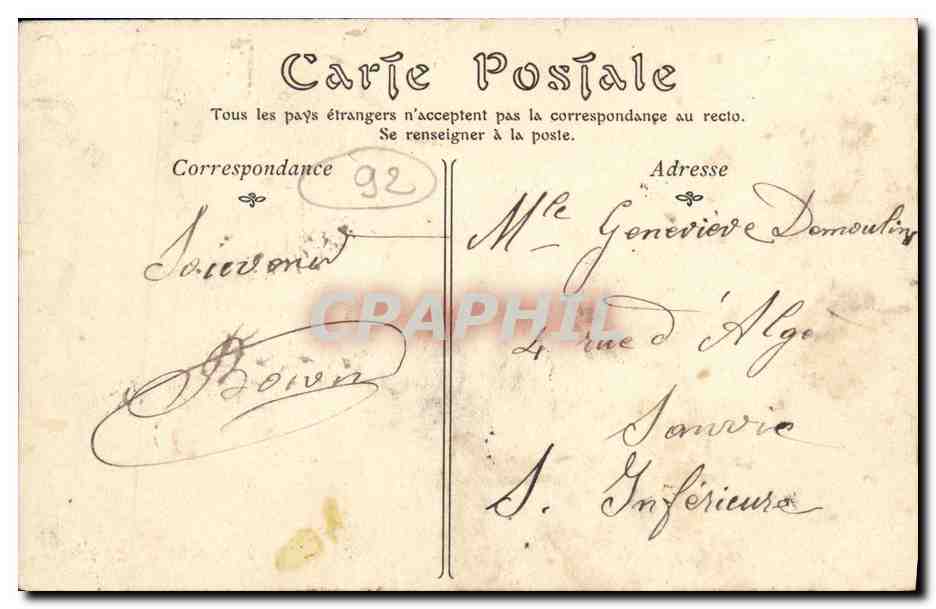 Carte Postale
Tous les pays étrangers n'acceptent pas la correspondance au recto.
Se renseigner à la poste.
Correspondance
92
Souvenir
Adresse
Mlle Geneviève Demoulins
4 rue d'Alge
Sanvic
S. Inférieure
CPAPHIL